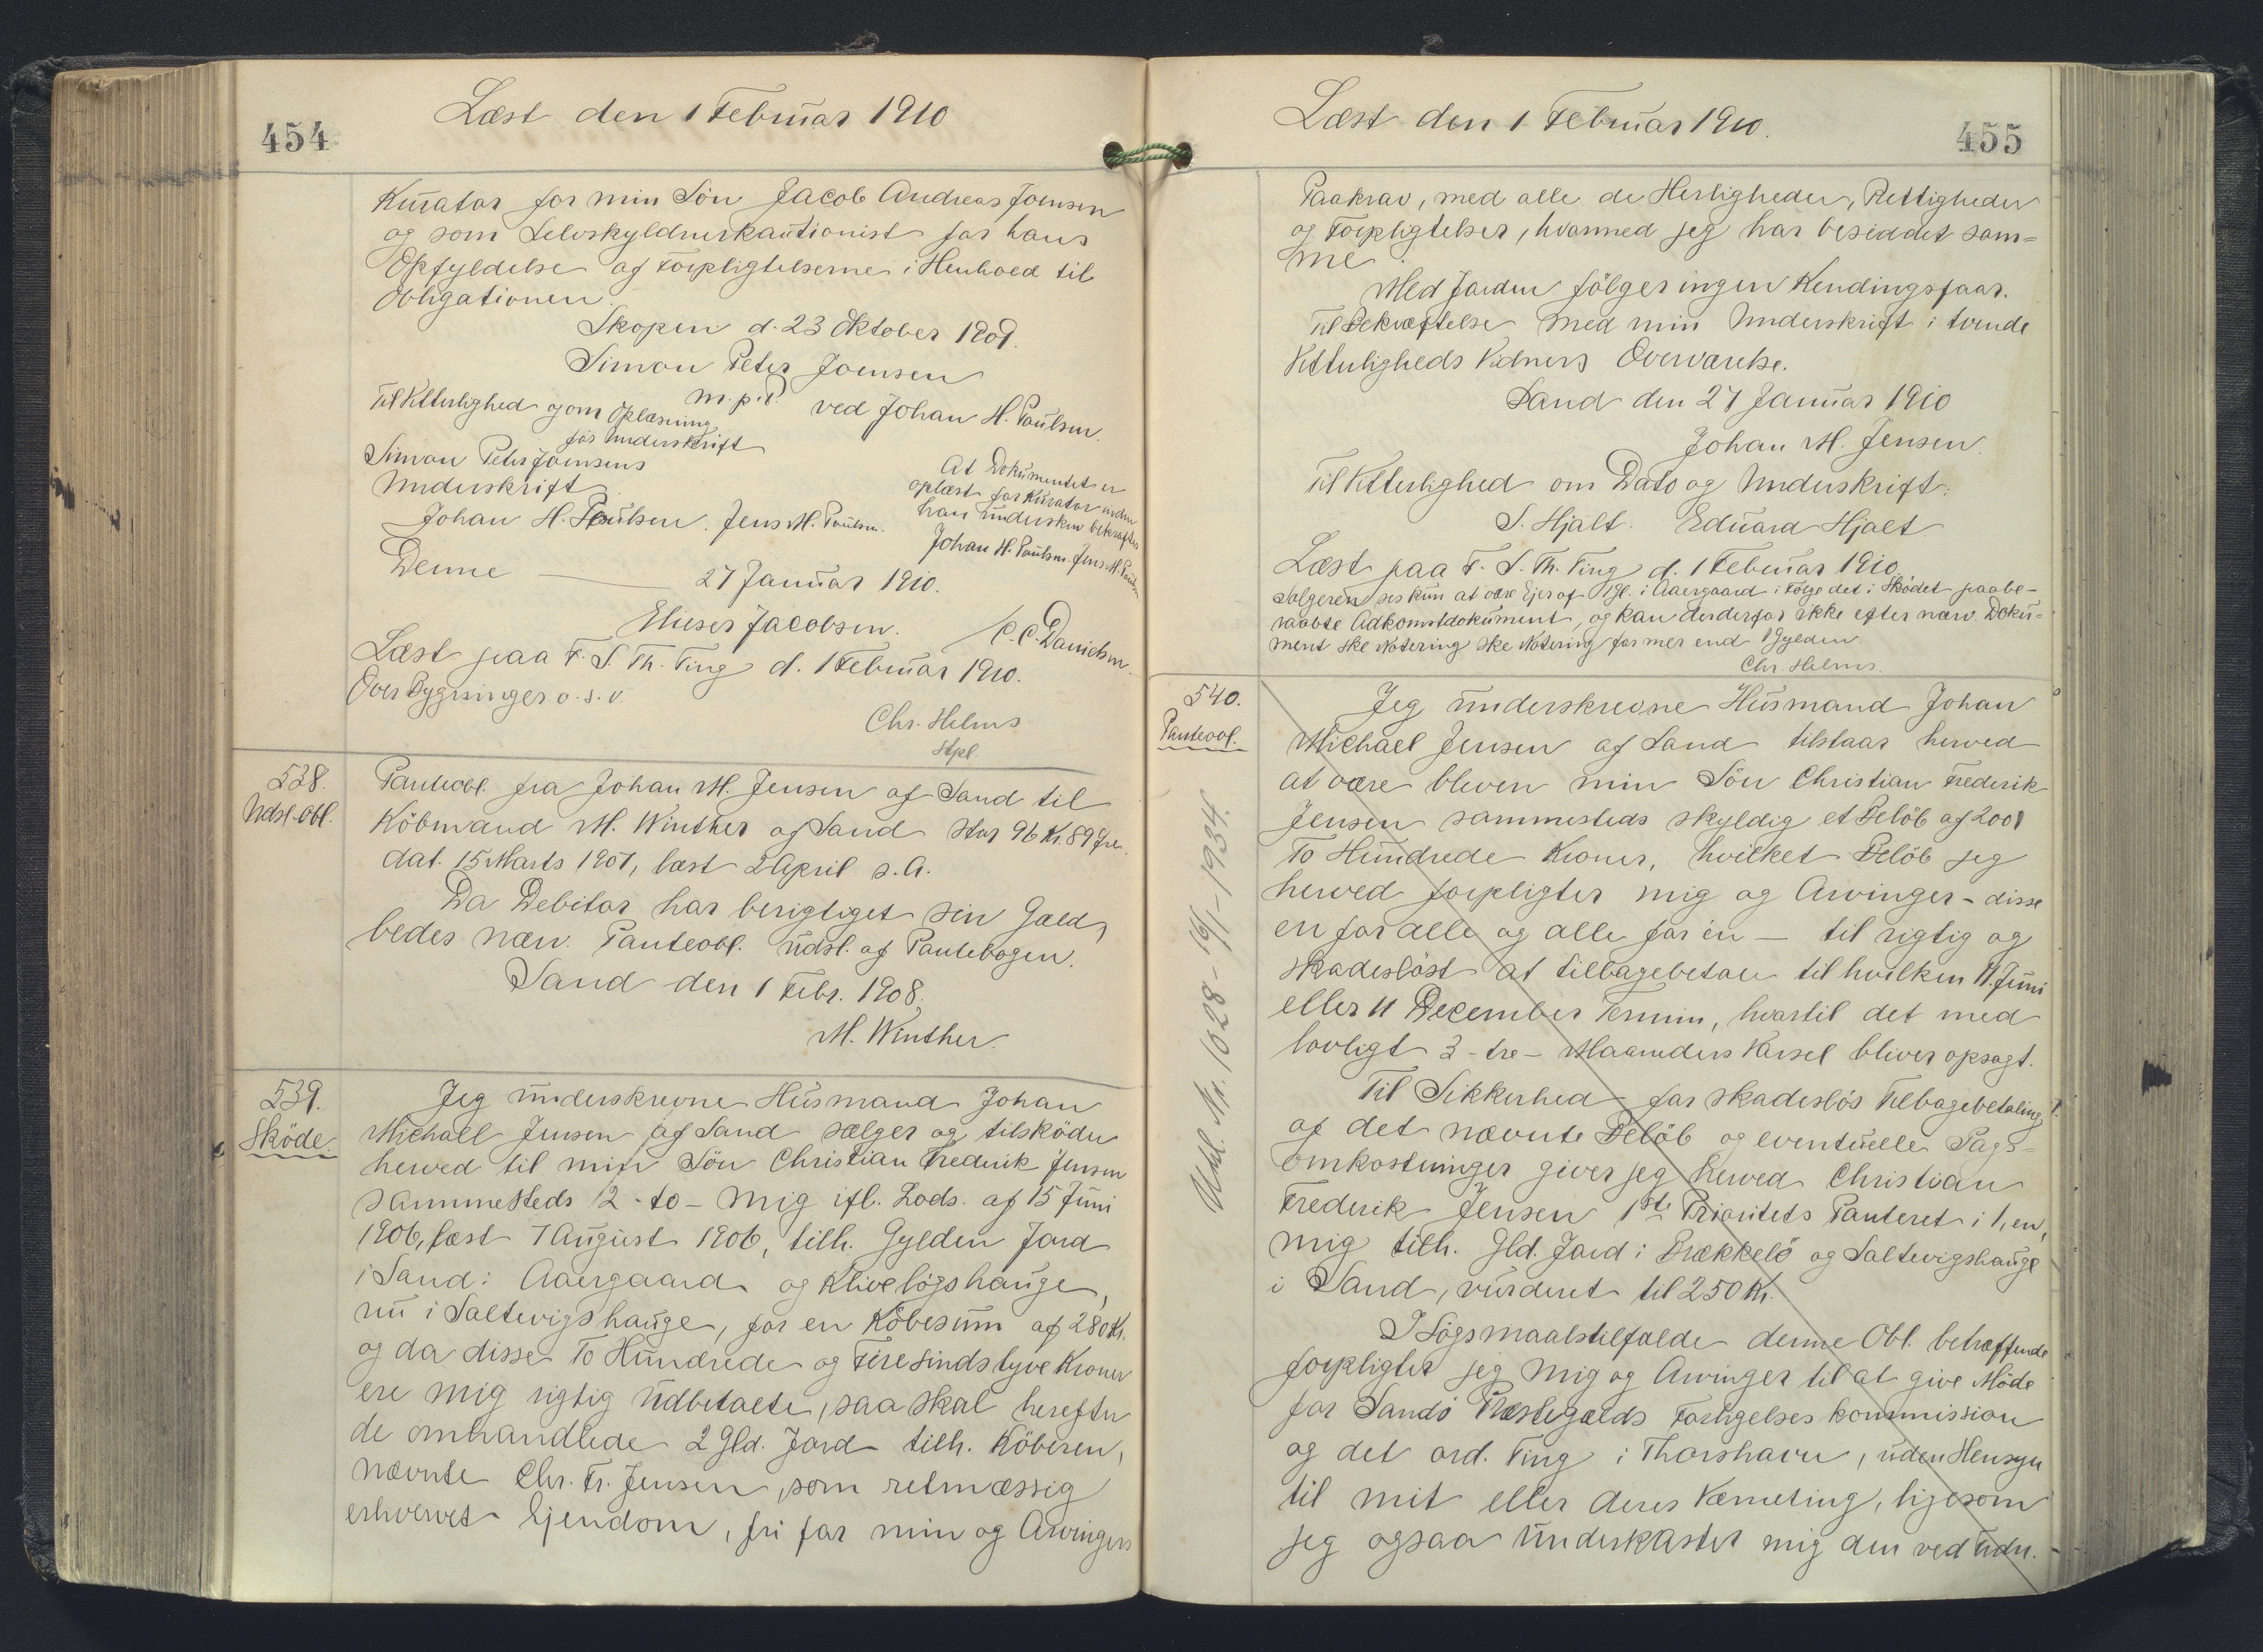 454
Læst den 1 Februar 1910
Kurator for min Sön Jacob Andreas Joensen
og som Selvskyldnerkautionist for hans
Opfyldelse af Forpligtelserne i Henhold til
Obligationen.
Skopen d. 23 Oktober 1909.
Simon Peter Joensen
m. p. P. ved Johan H. Paulsen.
Til Vitterlighed og om Oplæsning
för Underskrift
Simon Peter Joensens
Underskrift
Johan H. Poulsen. Jens M. Poulsen.
At Dokumentet er
oplæst for Kurator inden
han underskrev bekræftes
Johan H. Paulsen. Jens M. Poulsen
Denne — 27 Januar 1910.
Elieser Jacobsen. / C. C. Danielsen.
Læst paa F. S. Th. Ting d. 1 Februar 1910.
Over Bygninger o. s. v.
Chr. Helms
Stpl.
528.
Udsl. Obl.
Panteobl. fra Johan M. Jensen af Sand til
Köbmand M. Winther af Sand stor 96 Kr. 89 Øre.
dat. 15 Marts 1907, læst 2 April s. A.
Da Debitor har berigtiget sin Gæld,
bedes næv. Panteobl. udsl. af Pantebogen.
Sand den 1 Febr. 1908.
M. Winther.
539.
Sköde.
Jeg underskrevne Husmand Johan
Michael Jensen af Sand sælger og tilsköder
herved til min Sön Christian Frederik Jensen
sammesteds 2 - to - mig ifl. Lods. af 15 Juni
1906, læst 7 August 1906, tilh. Gylden Jord
i Sand: Aaergaard og Kliveløgshauge,
nu i Saltevigshauge, for en Köbesum af 280 Kr.
og da disse To Hundrede og Firesindstyve Kroner
ere mig rigtig udbetalte, saa skal herefter
de omhandlede 2 Gld. Jord tilh. Köberen,
nævnte Chr. Fr. Jensen, som retmæssig
erhvervet Ejendom, fri for min og Arvingers
Læst den 1 Februar 1910.
455
Paakrav, med alle de Herligheder, Rettigheder
og Forpligtelser, hvormed jeg har besiddet sam=
me.
Med Jorden fölger ingen Kendingsfaar.
Til Bekræftelse med min Underskrift i tvende
Vitterligheds Vidners Overværelse.
Sand den 27 Januar 1910
Johan M. Jensen.
Til Vitterlighed om Dato og Underskrift:
S. Hjalt. Eduard Hjalt.
Læst paa F. S. Th. Ting d. 1 Februar 1910.
Sælgeren ses kun at være Ejer af 1 Gl. i Aaergaard i Følge det i Skødet paabe-
raabte Adkomstdokument, og kan der derfor ikke efter nærv. Doku=
ment ske Notering ske Notering for mer end 1 Gylden.
Chr. Helms.
540.
Panteobl.
Udsl. Nr. 1028 - 19/1 - 1934.
Jeg underskrevne Husmand Johan
Michael Jensen af Sand tilstaar herved
at være bleven min Sön Christian Frederik
Jensen sammesteds skyldig et Belöb af 200
To Hundrede Kroner, hvilket Belöb jeg
herved forpligter mig og Arvinger - disse
en for alle og alle for én — til rigtig og
skadeslöst at tilbagebetale til hvilken 11. Juni
eller 11 December Termin, hvortil det med
lovligt 3 - tre - Maaneders Varsel bliver opsagt.
Til Sikkerhed for skadeslös Tilbagebetaling
af det nævnte Belöb og eventuelle Sags=
omkostninger giver jeg herved Christian
Frederik Jensen 1ste Prioritets Panteret i 1, en,
mig tilh. Gld. Jord i Brækkelö og Saltevigshauge
i Sand, vurderet til 250 Kr.
I Sögsmaalstilfælde denne Obl. betræffende
forpligter jeg mig og Arvinger til at give Möde
for Sandö Præstegælds Forligelseskommission
og det ord. Ting i Thorshavn, uden Hensyn
til mit eller deres Værneting, ligesom
jeg ogsaa underkaster mig den ved Frdn.